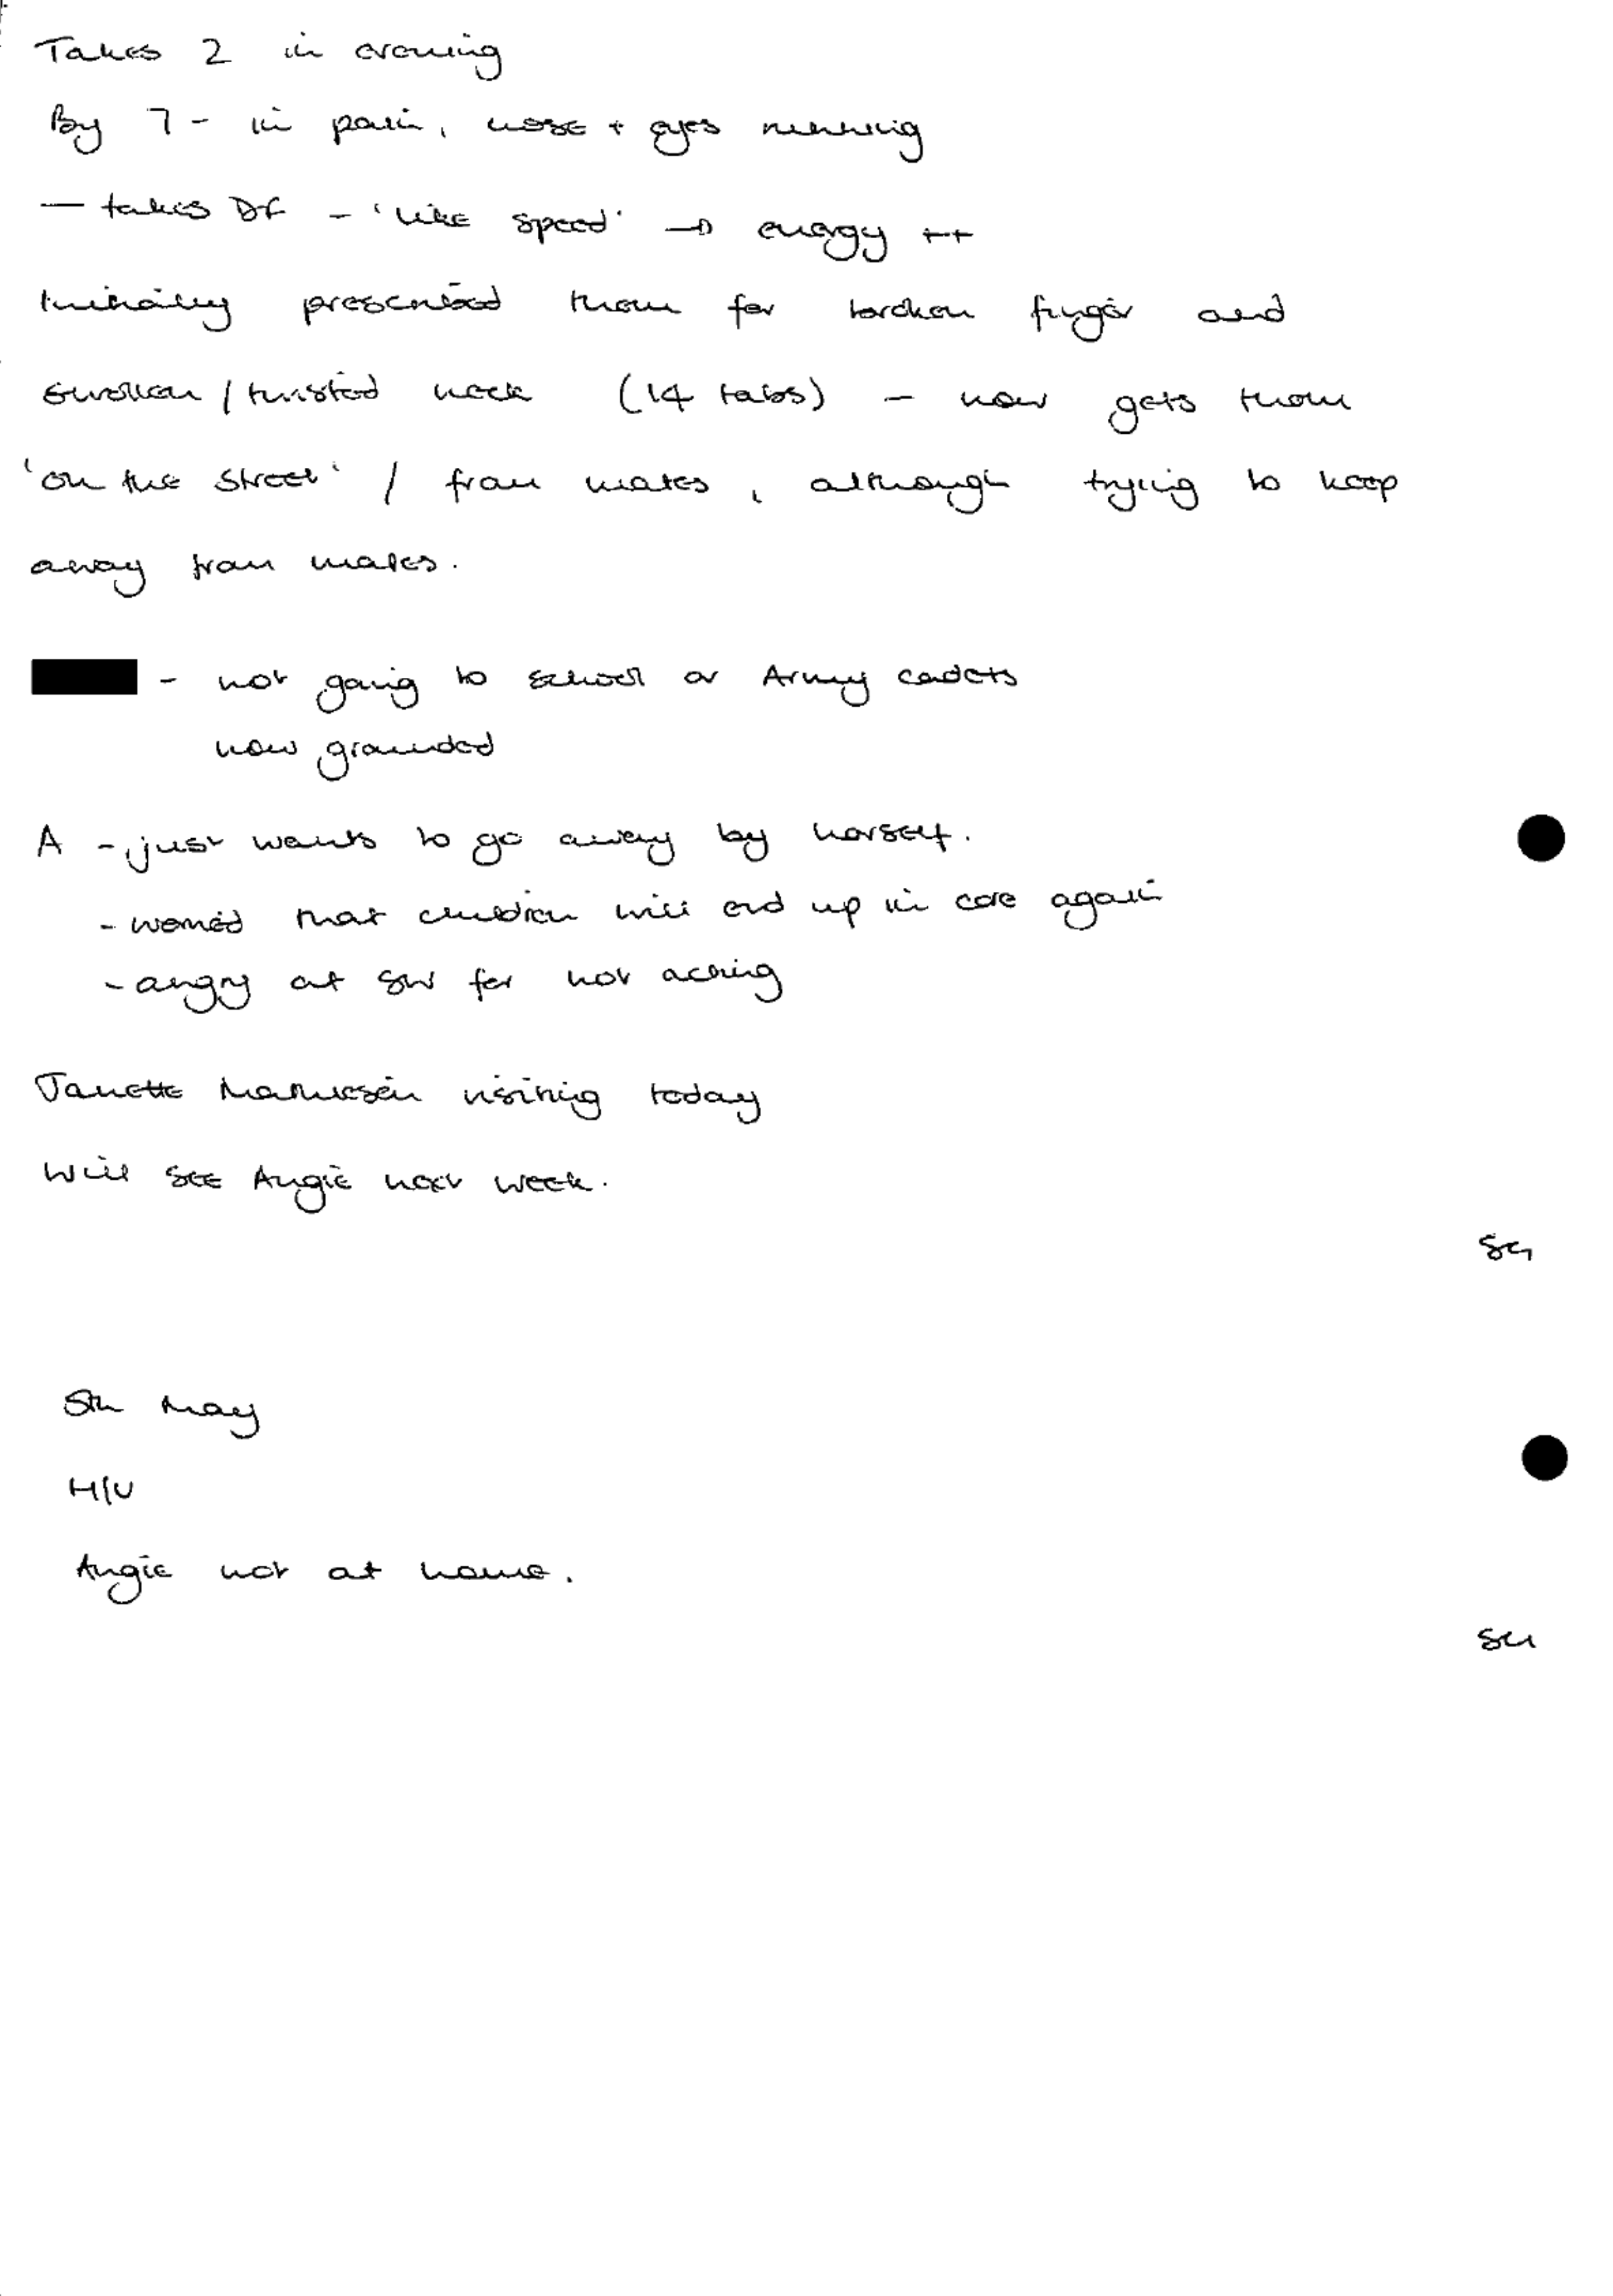 Takes 2 in evening
By 7 - in pain, nose + eyes running
— takes DF - 'like speed' → energy ++
Initially prescribed them for broken finger and
swollen / twisted neck (14 tabs) - now gets them
'on the street' / from mates, although trying to keep
away from mates.
- not going to school or Army cadets
now grounded
A - just wants to go away by herself.
- worried that children will end up in care again
- angry at SW for not acting
Janette visiting today
Will see Angie next week.
5th May
H/V
Angie not at home.